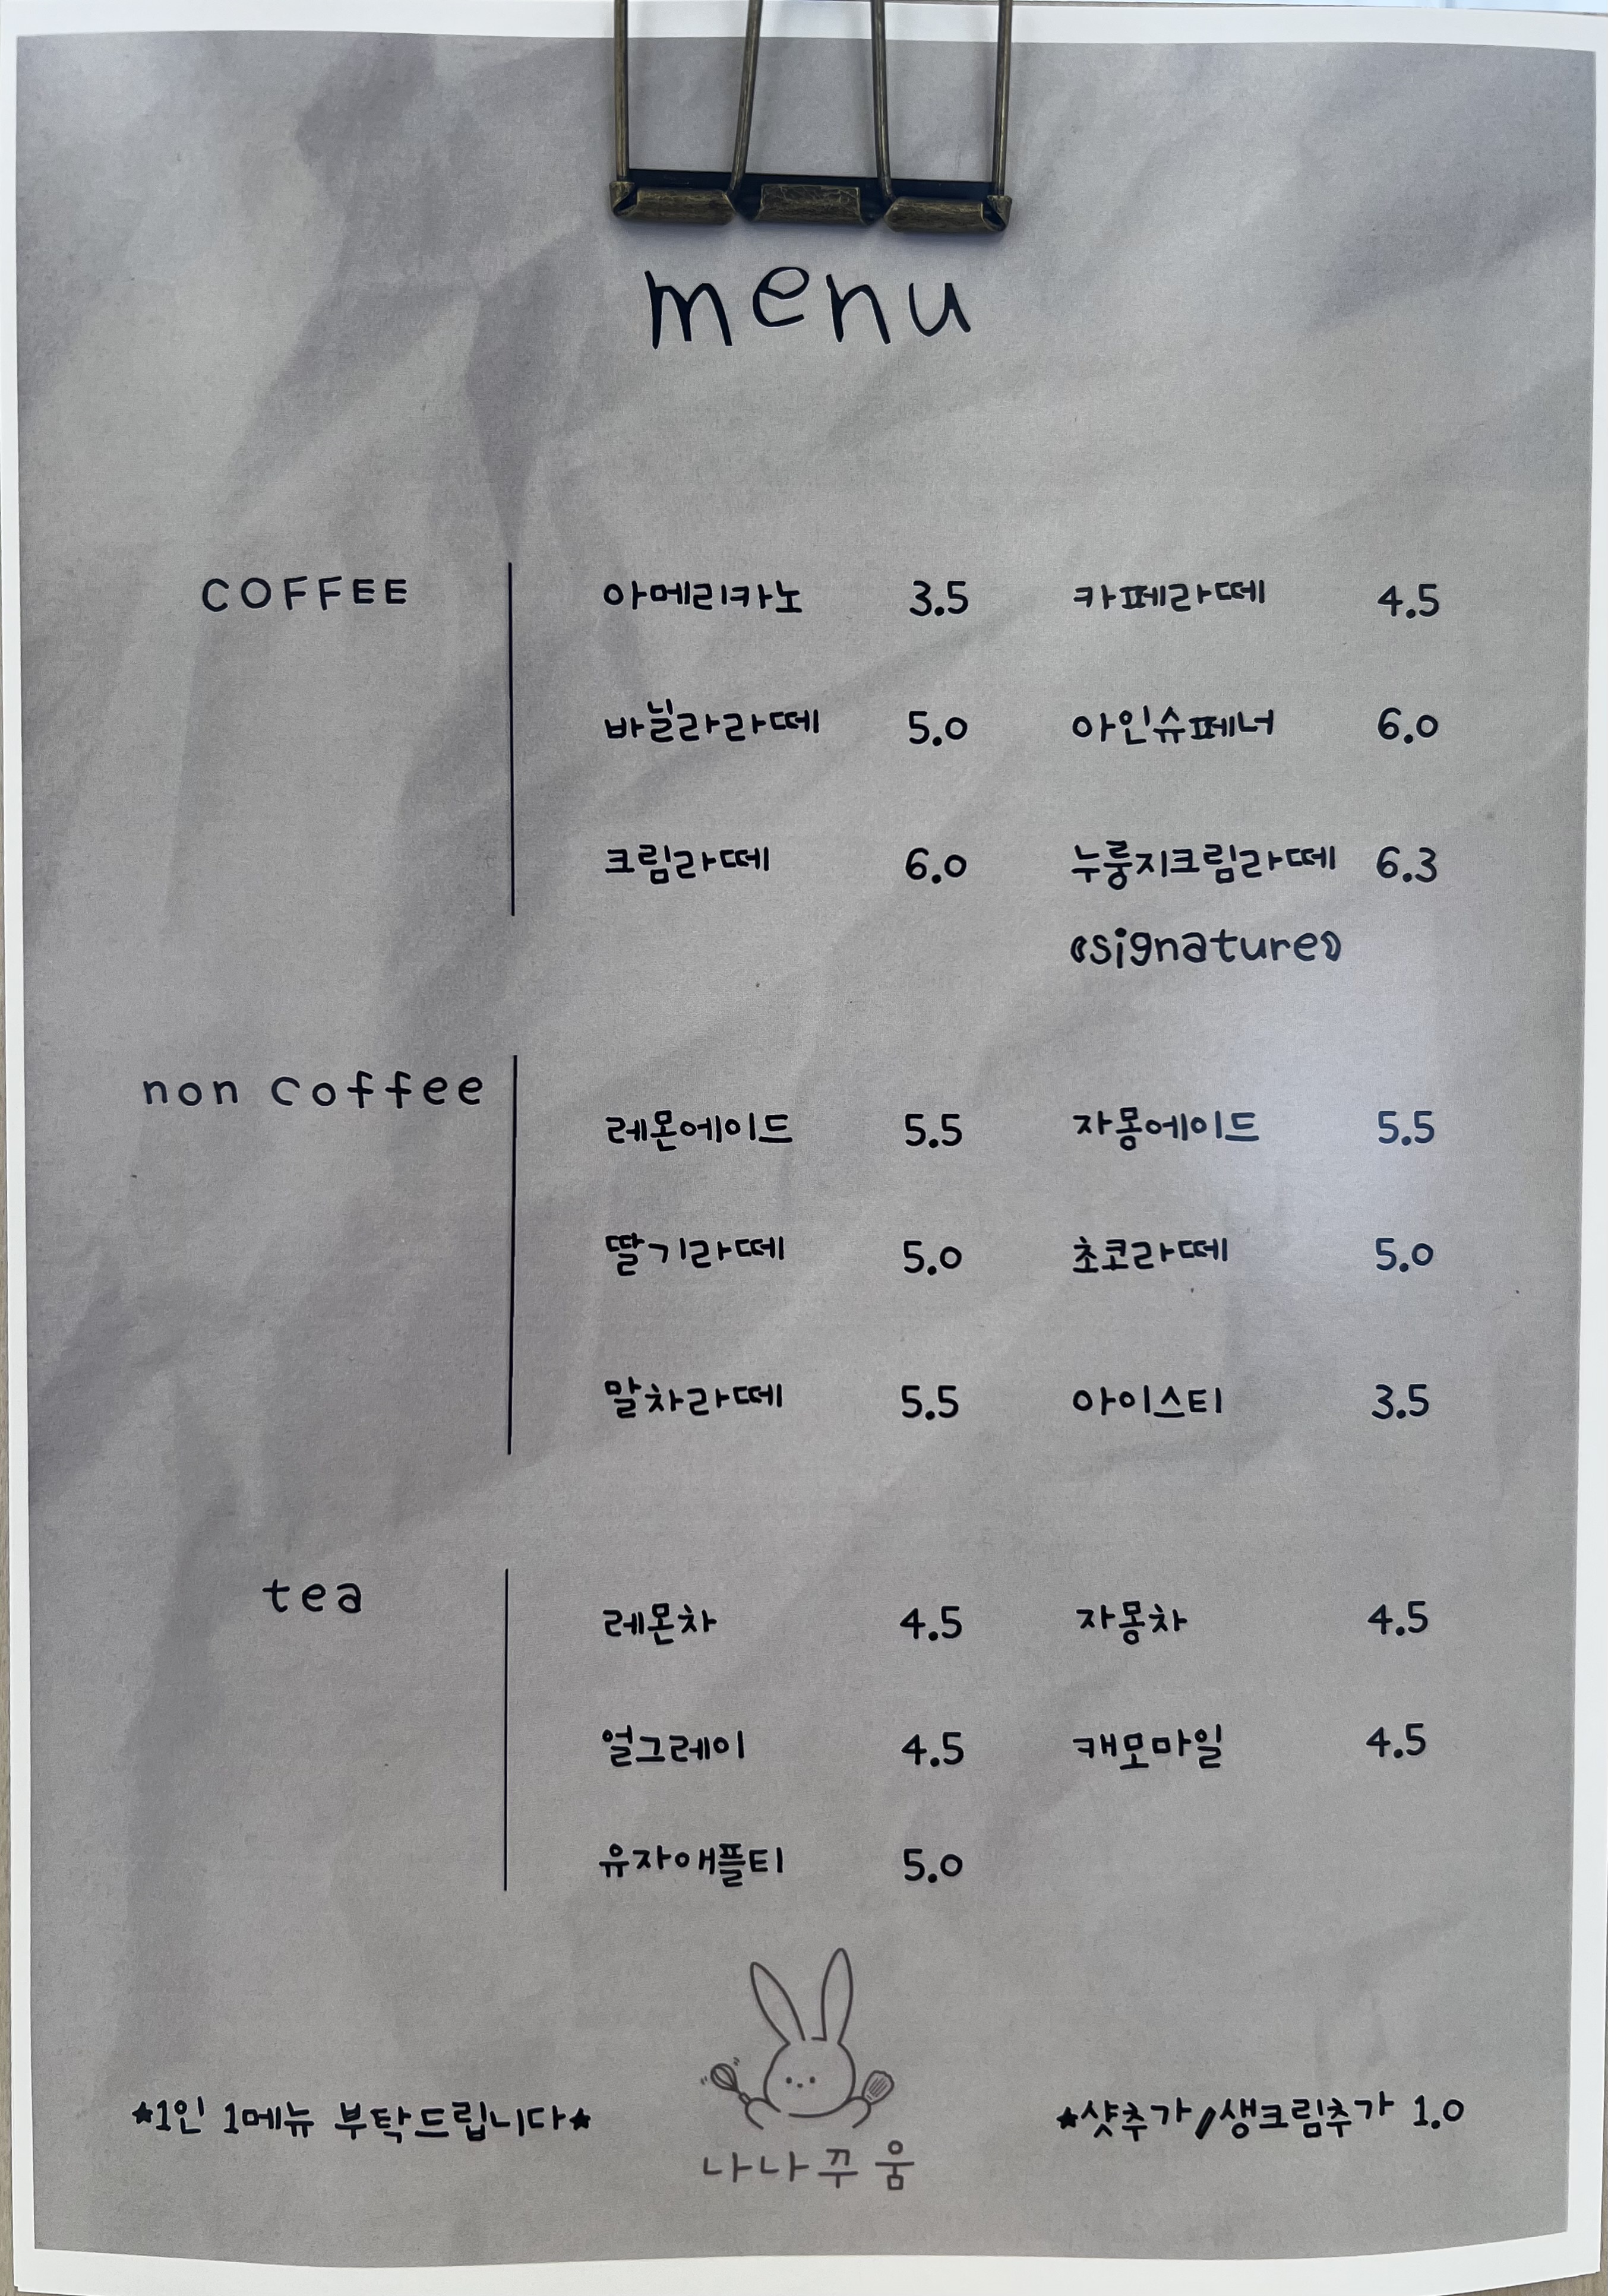 menu
COFFEE 아메리카노 3.5 카페라떼 4.5
바닐라라떼 5.0 아인슈페너 6.0
크림라떼 6.0 누룽지크림라떼 6.3
《signature》
non coffee
레몬에이드 5.5 자몽에이드 5.5
딸기라떼 5.0 초코라떼 5.0
말차라떼 5.5 아이스티 3.5
tea
레몬차 4.5 자몽차 4.5
얼그레이 4.5 캐모마일 4.5
유자애플티 5.0
★1인 1메뉴 부탁드립니다★ ★샷추가/생크림추가 1.0
나나꾸움